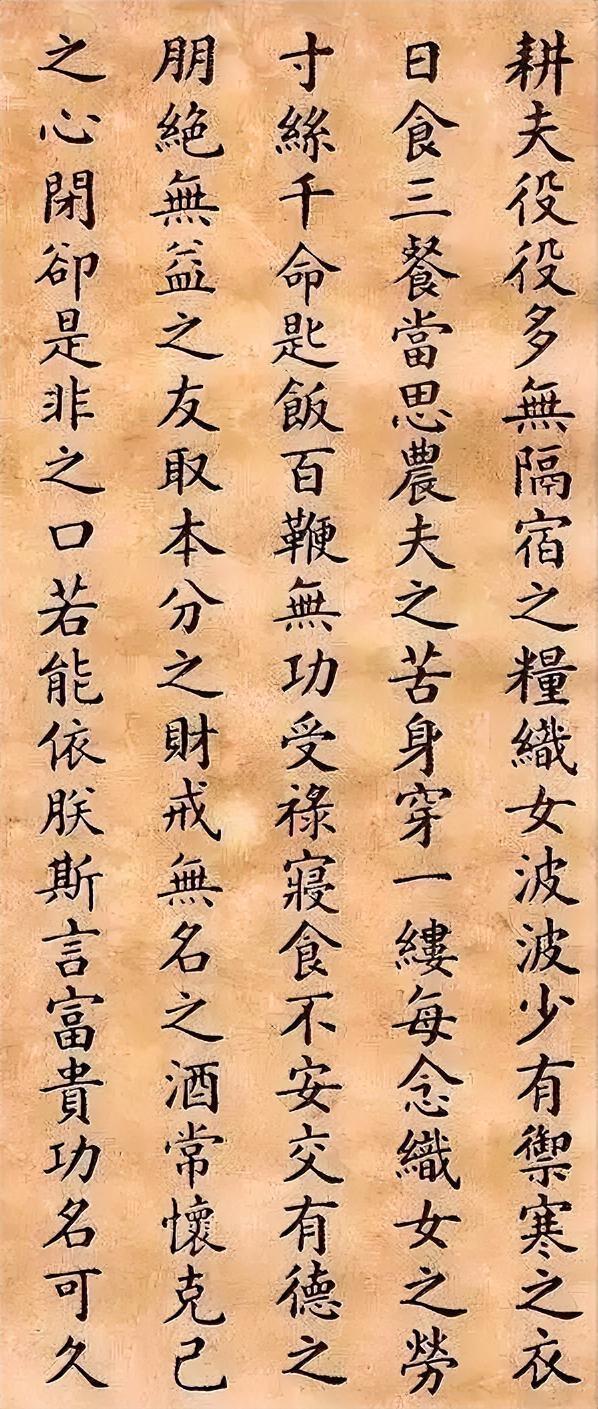 耕夫役役多無隔宿之糧織女波波少有禦寒之衣
日食三餐當思農夫之苦身穿一縷每念織女之勞
寸絲千命匙飯百鞭無功受祿寢食不安交有德之
朋絕無益之友取本分之財戒無名之酒常懷克己
之心閉卻是非之口若能依朕斯言富貴功名可久